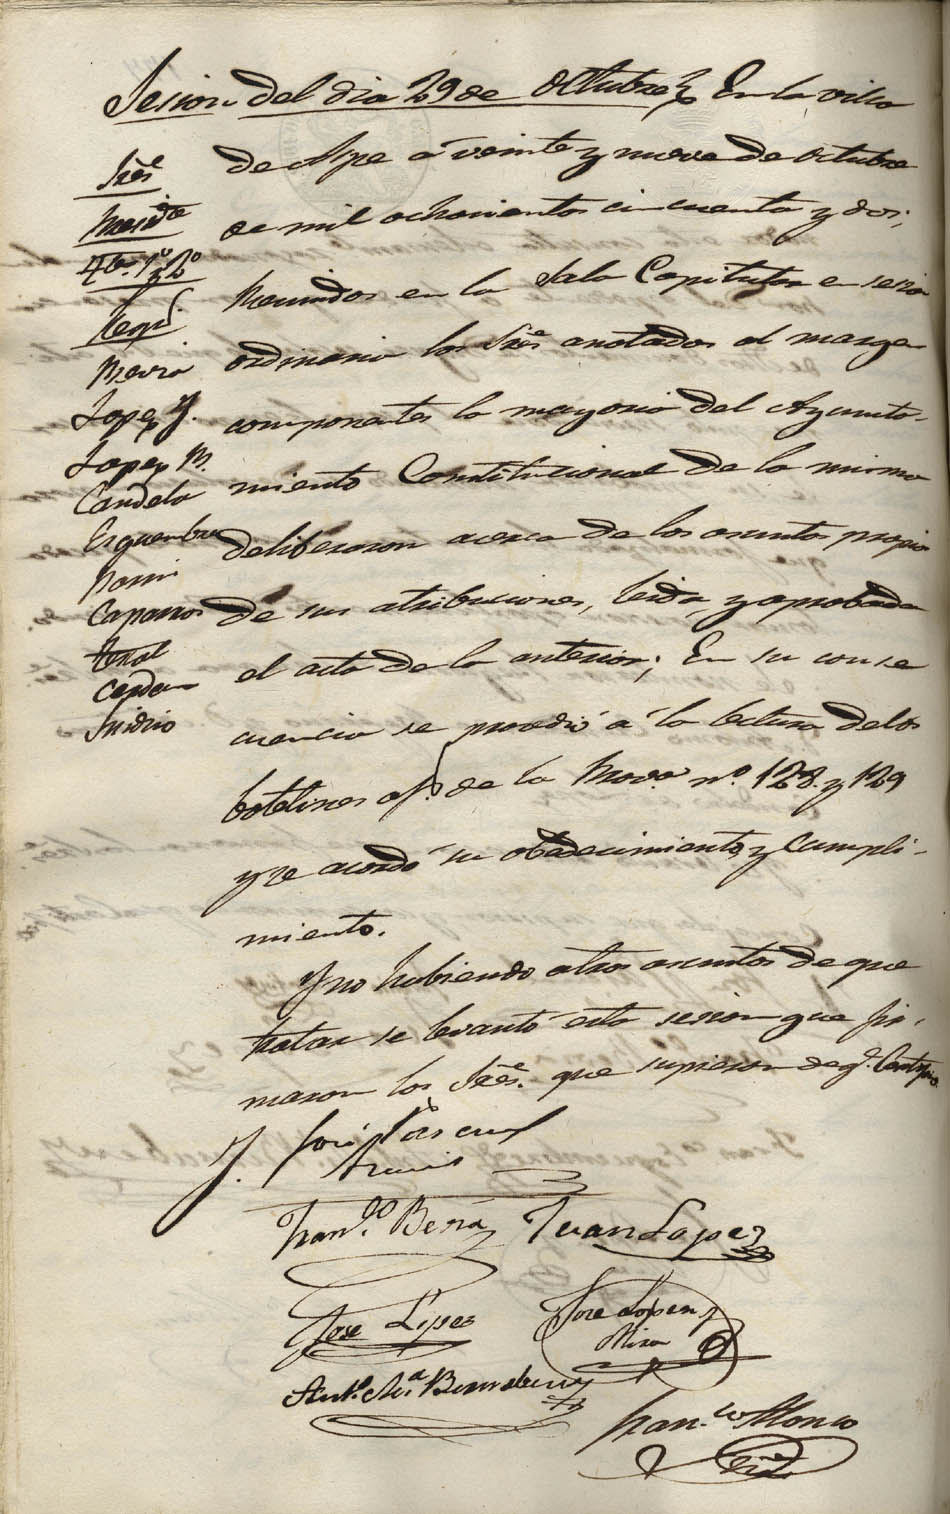 Sesion del dia 29 de Octubre. En la villa
de Aspe á veinte y nueve de Octubre
de mil ochocientos cincuenta y dos;
Reunidos en la Sala Capitular en sesion
ordinaria los Sres anotados al margen
componentes la mayoria del Ayunta-
miento Constitucional de la misma
deliberaron acerca de los asuntos propios
de sus atribuciones, leida y aprobada
el acta de la anterior; En su conse
cuencia se procedió á la lectura de los
boletines of. de la Prova. nº. 128. y 129
y se acordó su obedecimiento y Cumpli-
miento.
Y no habiendo otros asuntos de que
tratar se levantó esta sesion que fir-
maron los Sres. que supieron de q.
Sres
Preside
1º y 2º
Regi
Lopez J.
Lopez M.
Candela
Esquembre
Caparros
José Pascual
Franco. Juan Lopez
Jose Lopez
Jose Lopez
Mira
Anto. Ma.
Franco Alonso